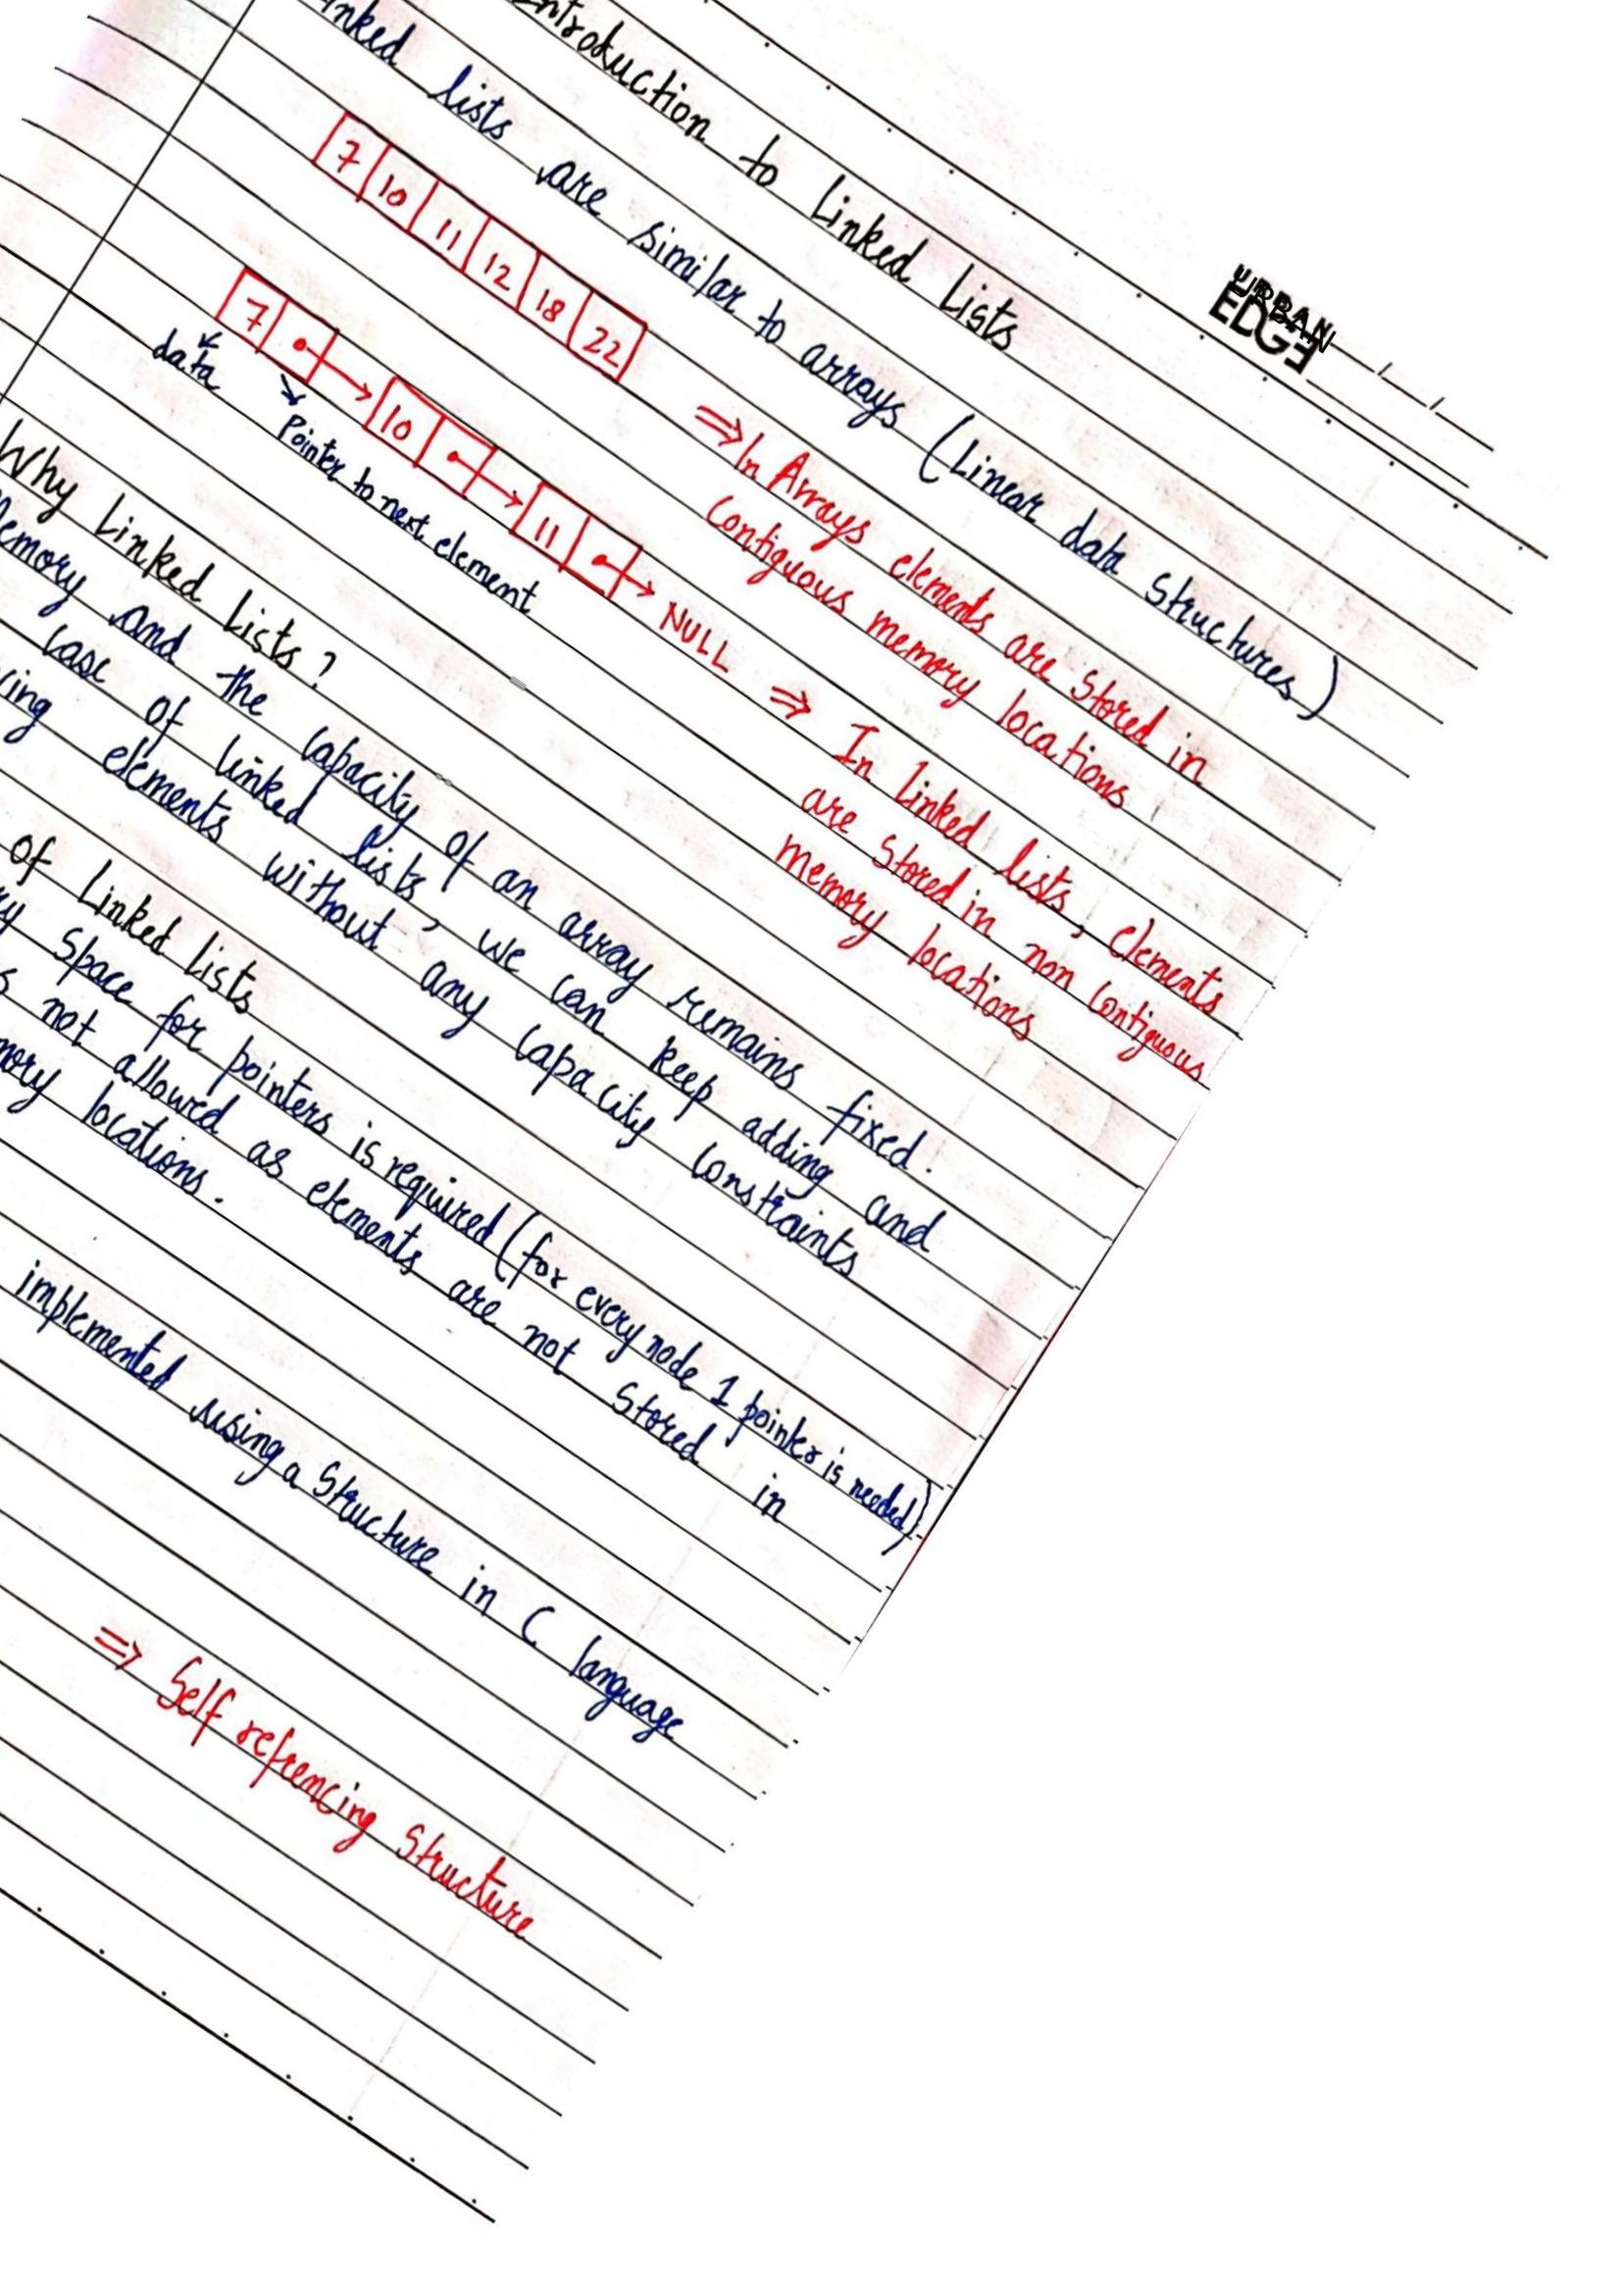 URBAN
EDGE
Introduction to Linked Lists
inked lists are similar to arrays (Linear data structures)
7 10 11 12 18 22
=> In Arrays elements are stored in
Contiguous memory locations
7 10 11 NULL
data
Pointer to next element
=> In linked lists, elements
are stored in non contiguous
memory locations
Why Linked Lists?
emory and the capacity of an array remains fixed.
case of linked lists, we can keep adding and
cing elements without any capacity constraints
of Linked Lists
ry space for pointers is required (for every node 1 pointer is needed)
s not allowed as elements are not stored in
mory locations.
implemented using a structure in C language
=> Self refrencing structure